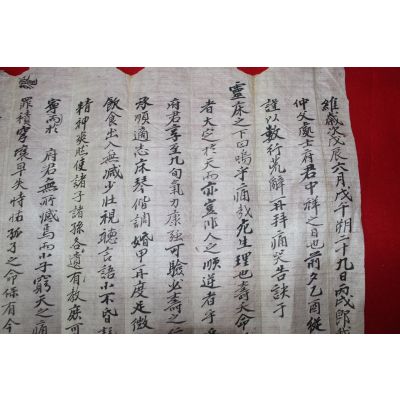 維歲次戊辰六月戊午朔二十九日丙戌卽我
仲父處士府君中祥之日也前夕乙酉從
謹以數行荒辭再拜痛哭告訣于
靈床之下曰嗚乎痛哉死生理也壽夭命
者大定於天而亦豈非人之順逆者乎
府君享年至九旬氣力康强可驗必壽之
承順適志床琴偕調婚甲再度是徵
飮食出入無减少壯視聽言語小不昏
精神爽然使諸子諸孫各遺有敎庶可
寧而於 府君無所憾焉而小子窮天之痛
罪積穹壤早失恃怙孤孑之命保有今